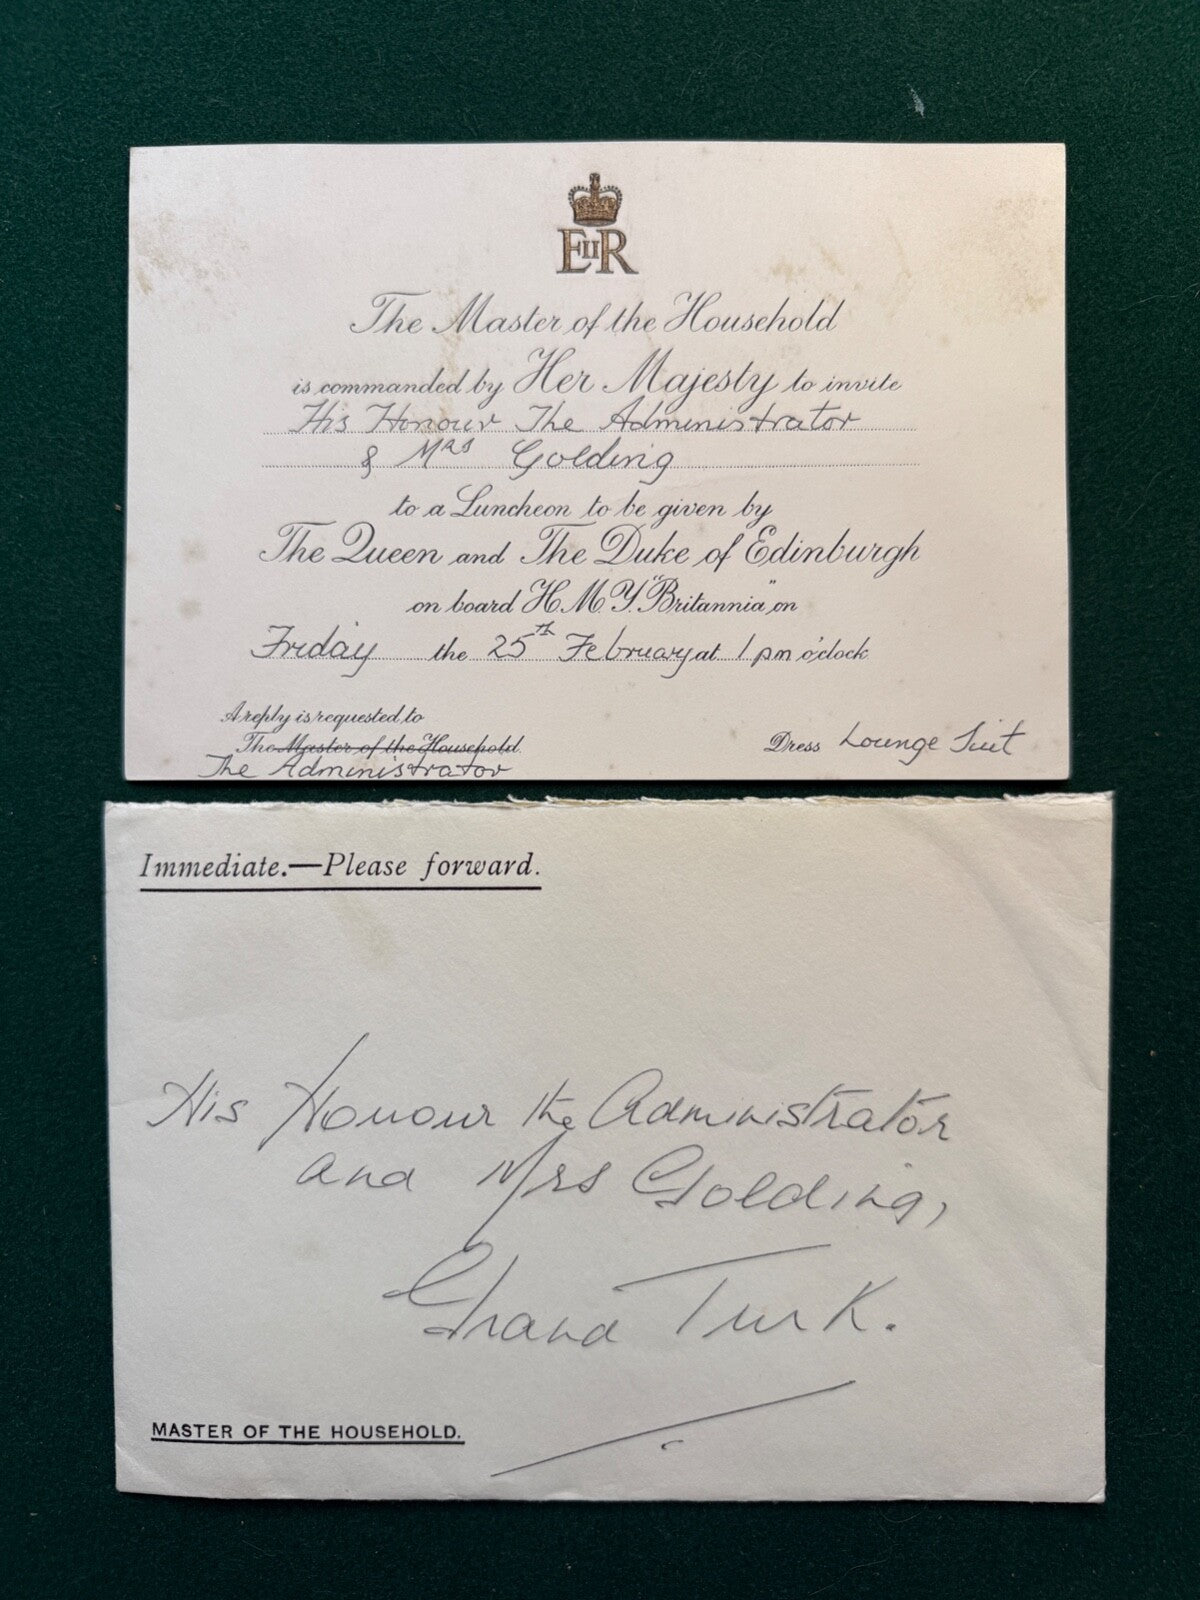 EIIR
The Master of the Household
is commanded by Her Majesty to invite
His Honour The Administrator
& Mrs Golding
to a Luncheon to be given by
The Queen and The Duke of Edinburgh
on board H.M.Y. "Britannia", on
Friday the 25th February at 1 pm o'clock
A reply is requested to
The Master of the Household
The Administrator
Dress Lounge Suit
Immediate.—Please forward.
His Honour the Administrator
and Mrs Golding,
Grand Turk.
MASTER OF THE HOUSEHOLD.